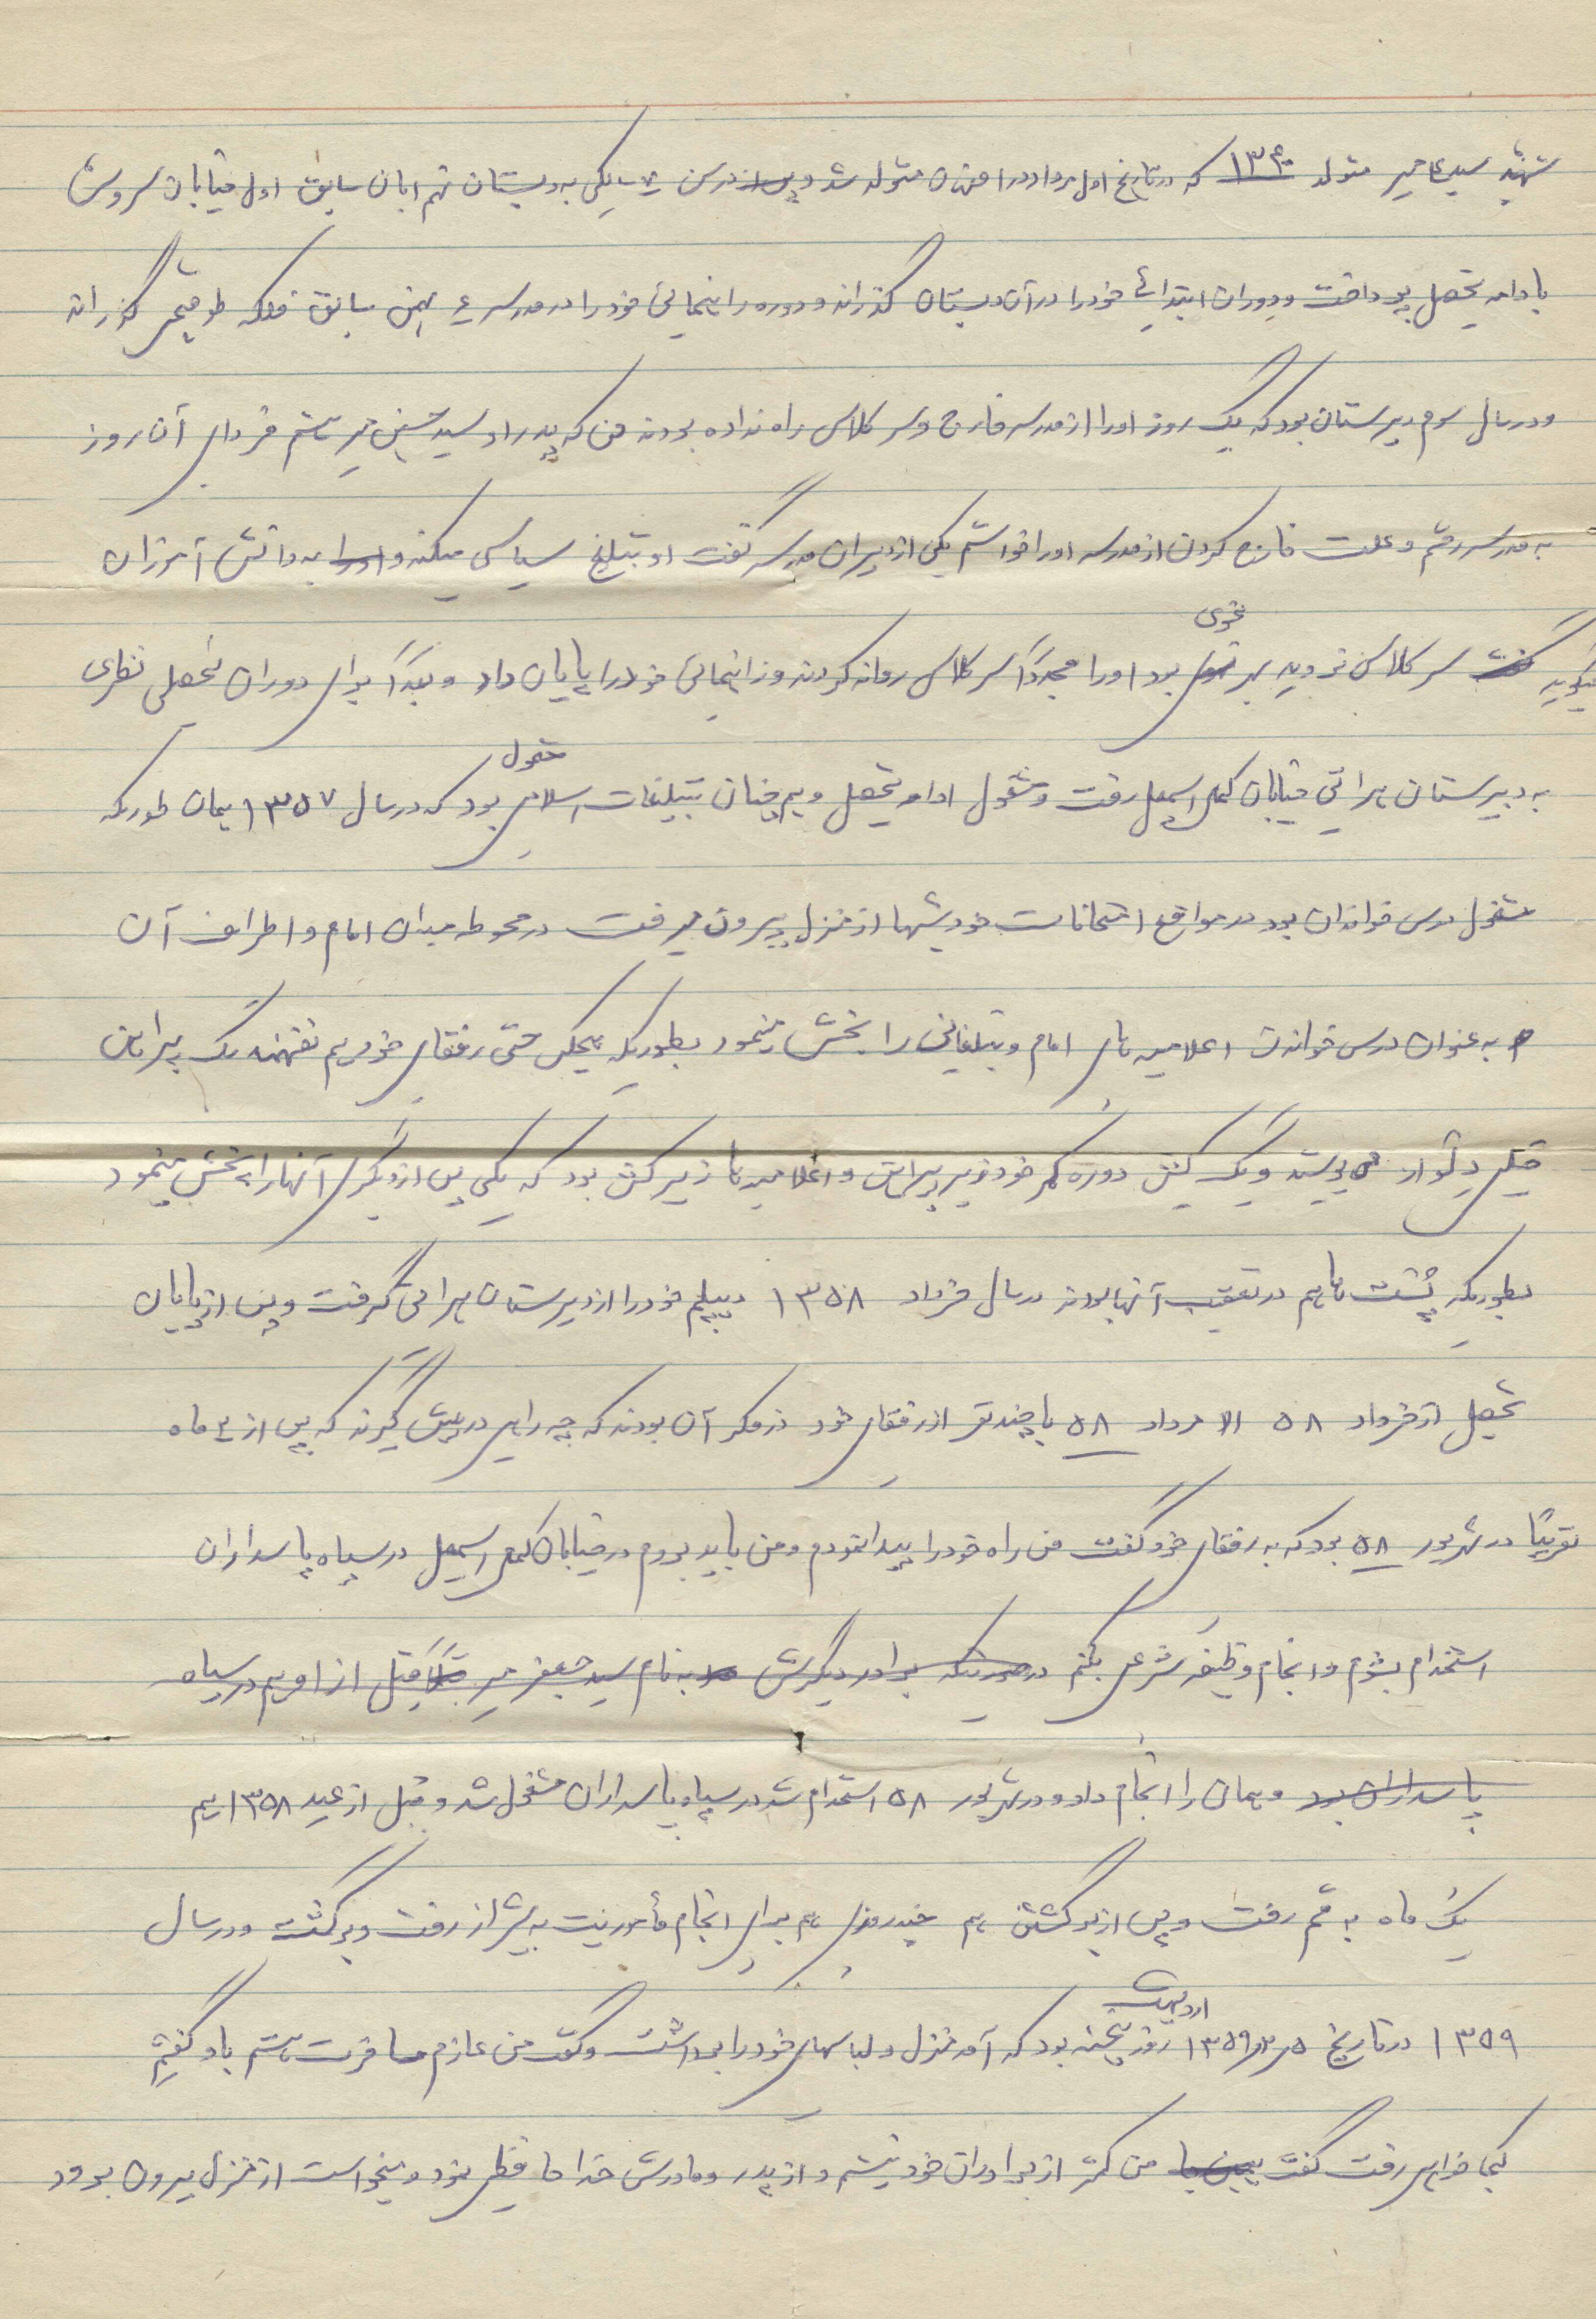 شهید سید میر متولد ۱۳۴۰ که در تاریخ اول مرداد در اصفهان متولد شد و پس از در سن ۷ سالگی به دبستان نهم ابان سابق اول خیابان سروش
بادامه تحصیل پرداخت و دوران ابتدائی خود را در آن دبستان گذراند و دوره راهنمائی خود را در مدرسه بهمن سابق فلکه طوقچی گذراند
و در سال سوم دبیرستان بود که یک روز او را از مدرسه خارج و سر کلاس راه نداده بودند من که پدر او سید حسین میر هستم فردای آن روز
به مدرسه رفتم و علت خارج کردن از مدرسه او را خواستم یکی از دبیران مدرسه گفت او تبلیغ سیاسی میکند و او را به دانش آموزان
میگوید گفت سر کلاس نروید بهر نحوی بود او را مجدداً سر کلاس روانه کردند و راهنمائی خود را پایان داد و بعداً برای دوران تحصلی نظری
به دبیرستان هراتی خیابان کمال اسمعیل رفت و مشغول ادامه تحصیل و هم چنان بتبلیغات اسلامی مشغول بود که در سال ۱۳۵۷ همان طوریکه
مشغول درس خواندن بود در مواقع امتحانات خود شبها از منزل بیرون میرفت در محوطه میدان امام و اطراف آن
به عنوان درس خواندن اعلامیه های امام و تبلیغاتی را پخش مینمود بطوریکه هیچکس حتی رفقای خود هم نفهمند یک پیراهن
خیلی دلواز می پوشید و یک کیش دوره کمر خود زیر پیراهن و اعلامیه ها زیر کش بود که یکی پس از دیگری آنها را پخش مینمود
بطوریکه پشت ما هم در تعقیب آنها بودند در سال خرداد ۱۳۵۸ دیپلم خود را از دبیرستان هراتی گرفت و پس از پایان
تحصیل از خرداد ۵۸ الا مرداد ۵۸ با چند نفر از رفقای خود در فکر آن بودند که چه راهی در پیش گیرند که پس از ۲ ماه
تقریباً در شهریور ۵۸ بود که به رفقای خود گفت من راه خود را پیدا نمودم و من باید بروم در خیابان کمال اسمعیل در سپاه پاسداران
استخدام بشوم و انجام وظیفه شرعی بکنم در صورتیکه برادر دیگرش به نام سید جعفر میر قبلاً قبل از او هم در سپاه
پاسداران بود و همان را انجام داد و در شهریور ۵۸ استخدام شد در سپاه پاسداران مشغول شد و قبل از عید ۱۳۵۸ هم
یک ماه به قم رفت و پس از برگشتن هم چند روزی هم برای انجام مأموریت به شیراز رفت و برگشت و در سال
۱۳۵۹ در تاریخ ۱۳۵۹/۲/۵ اردیبهشت روز پنجشنبه بود که آمد منزل و لباسهای خود را برداشت و گفت من عازم مسافرت هستم باو گفتیم
کجا خواهی رفت گفت من کمتر از برادران خود نیستم و از پدر و مادرش خدا حافظی نمود و میخواست از منزل بیرون برود